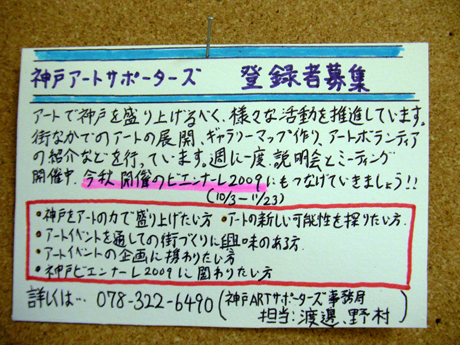 神戸アートサポーターズ 登録者募集
アートで神戸を盛り上げるべく、様々な活動を推進しています。
街なかでのアートの展開、ギャラリーマップ作り、アートボランティア
の紹介などを行っています。週に一度、説明会とミーティング
開催中。今秋開催のビエンナーレ2009にもつなげていきましょう!!
(10/3〜11/23)
・神戸をアートの力で盛り上げたい方 ・アートの新しい可能性を探りたい方
・アートイベントを通しての街づくりに興味のある方
・アートイベントの企画に携わりたい方
・神戸ビエンナーレ2009に関わりたい方
詳しくは… 078-322-6490 (神戸ARTサポーターズ事務局
担当:渡邊、野村)